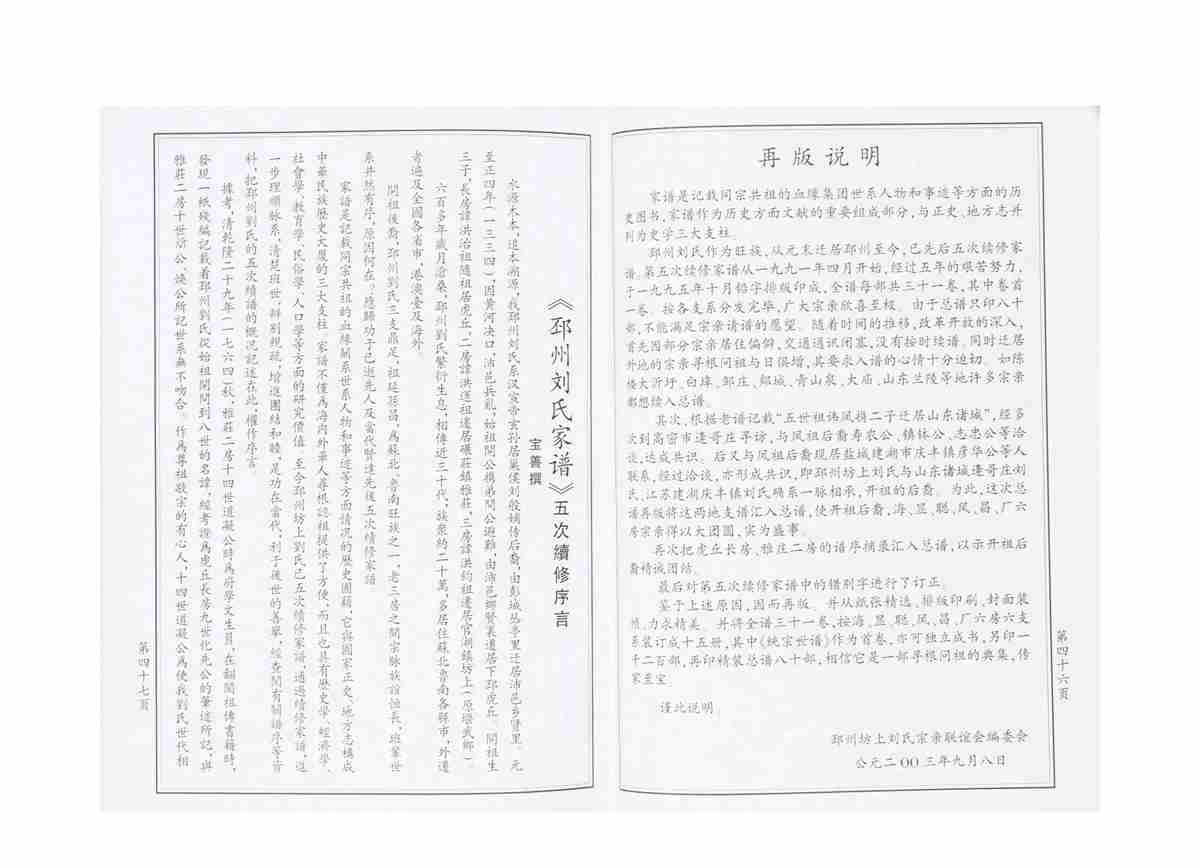 再版说明
家谱是记载同宗共祖的血缘集团世系人物和事迹等方面的历
史图书，家谱作为历史方面文献的重要组成部分，与正史、地方志并
列为史学三大支柱。
邳州刘氏作为旺族，从元末迁居邳州至今，已先后五次续修家
谱。第五次续修家谱从一九九一年四月开始，经过五年的艰苦努力，
于一九九五年十月铅字排版印成，全谱每部共三十一卷，其中卷首
一卷。按各支系分发完毕，广大宗亲欣喜至极。由于总谱只印八十
部，不能满足宗亲请谱的愿望。随着时间的推移，改革开放的深入，
首先因部分宗亲居住偏僻，交通通讯闭塞，没有按时续谱。同时迁居
外地的宗亲寻根问祖与日俱增，其要求入谱的心情十分迫切。如陈
楼大沂圩、白埠、邹庄、郯城、青山泉、大庙、山东兰陵等地许多宗亲
都想续入总谱。
其次，根据老谱记载“五世祖讳凤携二子迁居山东诸城”，经多
次到高密市逄哥庄寻访，与凤祖后裔寿农公、镇钵公、志忠公等洽
谈，达成共识。后又与凤祖后裔现居盐城建湖市庆丰镇彦华公等人
联系，经过洽谈，亦形成共识，即邳州坊上刘氏与山东诸城逄哥庄刘
氏，江苏建湖庆丰镇刘氏确系一脉相承，开祖的后裔。为此，这次总
谱再版将这两地支谱汇入总谱，使开祖后裔，海、昱、聪、凤、昌、广六
房宗亲得以大团圆，实为盛事。
再次把虎丘长房、雅庄二房的谱序摘录汇入总谱，以示开祖后
裔精诚团结。
最后对第五次续修家谱中的错别字进行了订正。
鉴于上述原因，因而再版。并从纸张精选、排版印刷、封面装
帧，力求精美。并将全谱三十一卷，按海、昱、聪、凤、昌、广六房六支
系装订成十五册，其中《统宗世谱》作为首卷，亦可独立成书，另印一
千二百部，再印精装总谱八十部，相信它是一部寻根问祖的典集，传
家至宝
谨此说明。
邳州坊上刘氏宗亲联谊会编委会
公元二OO三年九月八日
第四十六页
《邳州刘氏家谱》五次續修序言
宝善撰
水源木本，追本溯源，我邳州刘氏系汉宣帝玄孙居巢侯刘般辅传后裔，由彭城丛亭里迁居沛邑乡贤里。元
至正四年（一三三四）因黄河决口，沛邑兵乱，始祖開公携弟開公避難，由沛邑鄉賢裏遷居下邳虎丘。開祖生
三子，長房諱洪治祖隨祖居虎丘，二房諱洪道祖遷居碾莊鎮雅莊，三房諱洪约祖遷居官湖鎮坊上（原堪武鄉）。
六百多年歲月滄桑，邳州劉氏繁衍生息，相傳近三十代，族衆約二十萬，多居住蘇北魯南各縣市，外遷
者遍及全國各省市，港澳臺及海外。
開祖後裔，邳州劉氏三支鼎足，祖延孫昌，爲蘇北、魯南旺族之一，老三房之間宗脉族誼恒長，班輩世
系井然有序，原因何在？應歸功于已逝先人及當代賢達先後五次續修家譜。
家譜是記載同宗共祖的血緣關系世系人物和事迹等方面情况的歷史圖籍，它與國家正史、地方志構成
中華民族歷史大厦的三大支柱。家譜不僅爲海内外華人尋根認祖提供了方便，而且也具有歷史學、經濟學、
社會學、教育學、民俗學、人口學等方面的研究價值。至今邳州坊上劉氏已五次續修家譜，通過續修家譜，進
一步理順脉系，清楚班世，辩别親疏，增進團結和睦，是功在當代，利于後世的善舉，經查閲有關譜序等資
料，把邳州劉氏的五次續譜的概况記述在此，權作序言。
據考，清乾隆二十九年（一七六四）秋，雅莊二房十四世道凝公時爲府學文生員，在翻閲祖傳書籍時，
發現一紙殘編記載着邳州劉氏從始祖開開到八世的名諱，經考證爲虎丘長房九世化先公的筆述所記，與
雅莊二房十世忻公、焕公所記世系無不吻合。作爲尊祖敬宗的有心人，十四世道凝公爲使我劉氏世代相
第四十七页